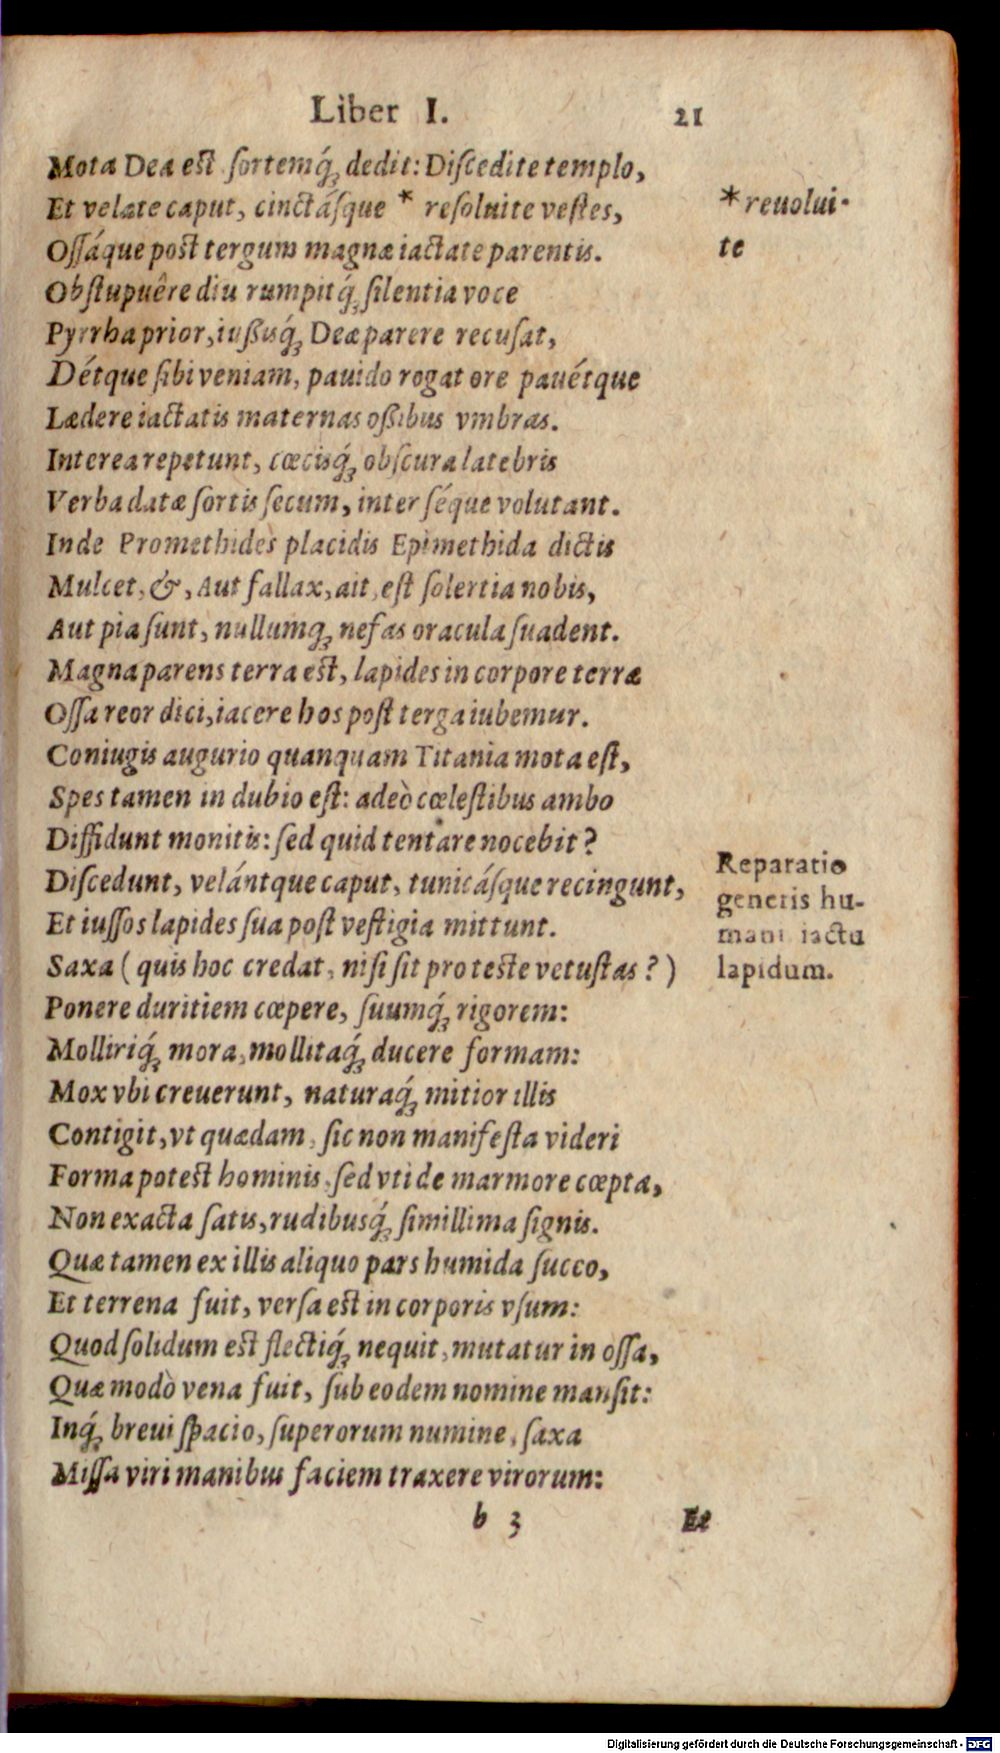 Liber I. 21
Mota Dea est sortemq́ꝫ dedit: Discedite templo,
Et velate caput, cinctásque * resoluite vestes,
* reuolui-
te
Ossáque post tergum magnæ iactate parentis.
Obstupuêre diu rumpitq́ꝫ silentia voce
Pyrrha prior, iußisq́ꝫ Deæ parere recusat,
Détque sibi veniam, pauido rogat ore pauétque
Lædere iactatis maternas oßibus vmbras.
Interea repetunt, cæcisq́ꝫ obscura latebris
Verba datæ sortis secum, inter séque volutant.
Inde Promethides placidis Epimethida dictis
Mulcet, &, Aut fallax, ait, est solertia nobis,
Aut pia sunt, nullumqꝫ nefas oracula suadent.
Magna parens terra est, lapides in corpore terræ
Ossa reor dici, iacere hos post terga iubemur.
Coniugis augurio quanquam Titania mota est,
Spes tamen in dubio est: adeò cœlestibus ambo
Diffidunt monitis: sed quid tentare nocebit?
Discedunt, velántque caput, tunicásque recingunt,
Et iussos lapides sua post vestigia mittunt.
Saxa (quis hoc credat, nisi sit pro teste vetustas?)
Reparatio
generis hu-
mani iactu
lapidum.
Ponere duritiem cœpere, suumq́ꝫ rigorem:
Molliriq́ꝫ mora, mollitaq́ꝫ ducere formam:
Mox vbi creuerunt, naturaq́ꝫ mitior illis
Contigit, vt quædam, sic non manifesta videri
Forma potest hominis, sed vti de marmore cœpta,
Non exacta satis, rudibusq́ꝫ simillima signis.
Quæ tamen ex illis aliquo pars humida succo,
Et terrena fuit, versa est in corporis vsum:
Quod solidum est flectiq́ꝫ nequit, mutatur in ossa,
Quæ modò vena fuit, sub eodem nomine mansit:
Inq́ꝫ breui spacio, superorum numine, saxa
Missa viri manibus faciem traxere virorum:
b 3 Et
Digitalisierung gefördert durch die Deutsche Forschungsgemeinschaft - DFG